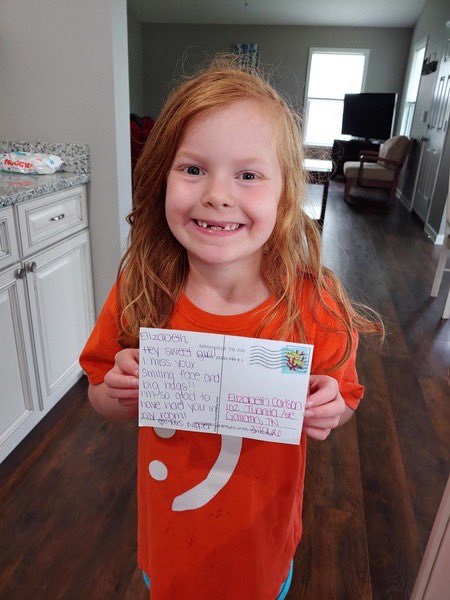 HUGGIES
Elizabeth,
Hey sweet girl!
I miss your
smiling face and
big hugs!!
I'm so glad to
have had you in
my room!
Elizabeth Carlson
102 Juanita Ave
Gallatin, TN